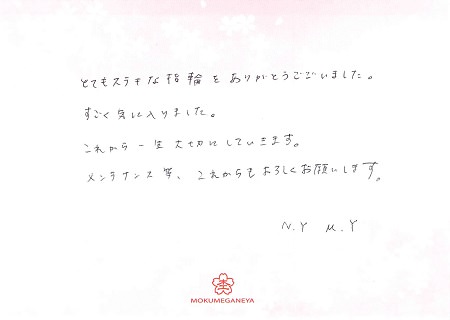 とてもステキな指輪をありがとうございました。
すごく気に入りました。
これから一生大切にしていきます。
メンテナンス等、これからもよろしくお願いします。
N.Y M.Y
MOKUMEGANEYA